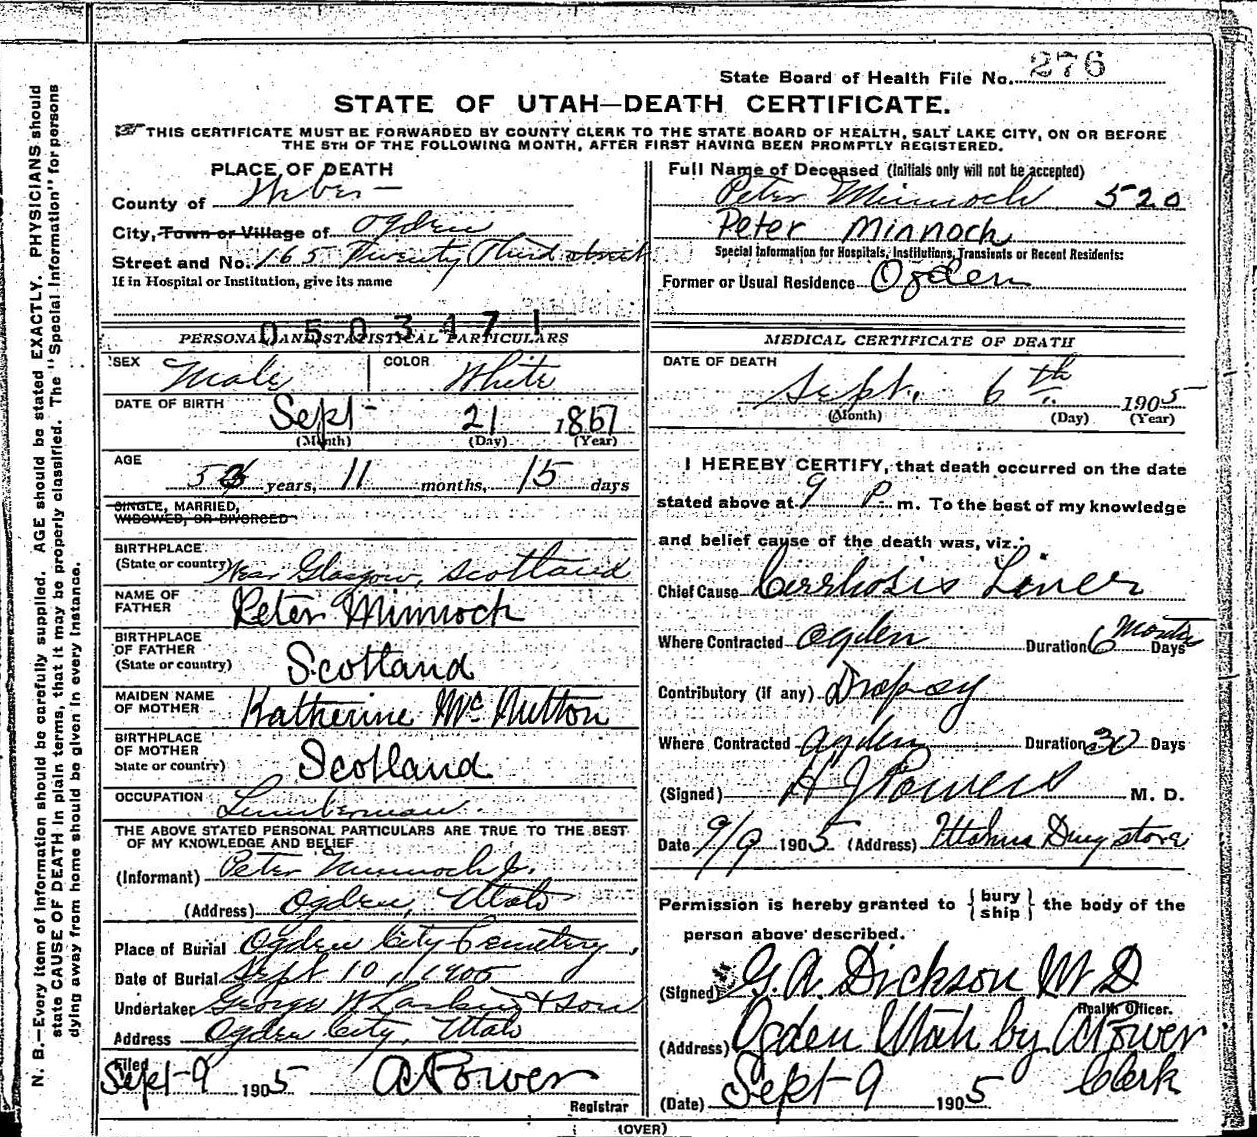 State Board of Health File No. 276
STATE OF UTAH—DEATH CERTIFICATE.
THIS CERTIFICATE MUST BE FORWARDED BY COUNTY CLERK TO THE STATE BOARD OF HEALTH, SALT LAKE CITY, ON OR BEFORE
THE 5TH OF THE FOLLOWING MONTH, AFTER FIRST HAVING BEEN PROMPTLY REGISTERED.
N. B.—Every item of information should be carefully supplied. AGE should be stated EXACTLY. PHYSICIANS should
state CAUSE OF DEATH in plain terms, that it may be properly classified. The "Special Information" for persons
dying away from home should be given in every instance.
PLACE OF DEATH
County of Weber
City, Town or Village of Ogden
Street and No. 165 Twenty Third street
If in Hospital or Institution, give its name
0503471
PERSONAL AND STATISTICAL PARTICULARS
SEX Male COLOR White
DATE OF BIRTH Sept 21 1851
(Month) (Day) (Year)
AGE
53 years, 11 months, 15 days
SINGLE, MARRIED,
WIDOWED, OR DIVORCED
BIRTHPLACE
(State or country) Near Glasgow, Scotland
NAME OF
FATHER Peter Minnoch
BIRTHPLACE
OF FATHER
(State or country) Scotland
MAIDEN NAME
OF MOTHER Katherine Mc Nutton
BIRTHPLACE
OF MOTHER
State or country) Scotland
OCCUPATION Lumberman.
THE ABOVE STATED PERSONAL PARTICULARS ARE TRUE TO THE BEST
OF MY KNOWLEDGE AND BELIEF
(Informant) Peter Minnoch Jr.
(Address) Ogden, Utah
Place of Burial Ogden City Cemetery,
Date of Burial Sept 10, 1905
Undertaker George W Larkin & Son
Address Ogden City, Utah
Filed
Sept 9 1905 A Power
Registrar
Full Name of Deceased (Initials only will not be accepted)
Peter Minnoch 520
Peter Minnoch
Special Information for Hospitals, Institutions, Transients or Recent Residents:
Former or Usual Residence Ogden
MEDICAL CERTIFICATE OF DEATH
DATE OF DEATH
Sept. 6th 1905
(Month) (Day) (Year)
I HEREBY CERTIFY, that death occurred on the date
stated above at 9 P. m. To the best of my knowledge
and belief cause of the death was, viz.:
Chief Cause Cirrhosis Liver
Where Contracted Ogden Duration 6 Months Days
Contributory (if any) Dropsy
Where Contracted Ogden Duration 30 Days
(Signed) H J Powers M. D.
Date 9/9 1905 (Address) Utahna Drug store
Permission is hereby granted to {bury ship} the body of the
person above described.
(Signed) G. A. Dickson M D
Health Officer.
(Address) Ogden Utah by A Power
Clerk
(Date) Sept 9 1905
(OVER)